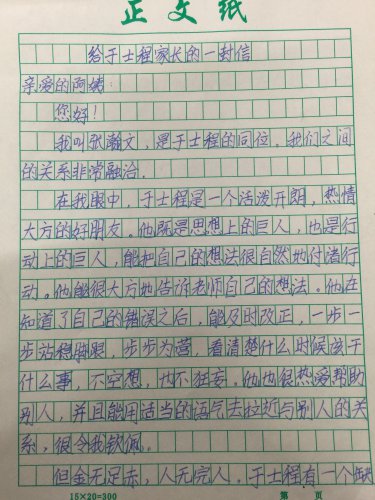 正文纸
给于士程家长的一封信
亲爱的阿姨：
您好！
我叫张瀚文，是于士程的同位。我们之间
的关系非常融洽。
在我眼中，于士程是一个活泼开朗，热情
大方的好朋友。他既是思想上的巨人，也是行
动上的巨人，能把自己的想法很自然地付诸行
动。他能很大方地告诉老师自己的想法。他在
知道了自己的错误之后，能及时改正，一步一
步站稳脚跟，步步为营，看清楚什么时候该干
什么事，不空想，也不狂妄。他也很热爱帮助
别人，并且能用适当的语气去拉近与别人的关
系，很令我钦佩。
但金无足赤，人无完人。于士程有一个缺
15×20=300 第 页